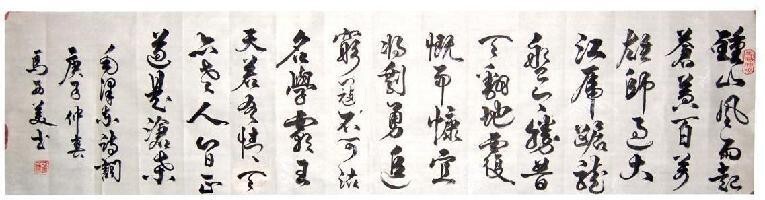 鍾山風雨起
蒼黃百万
雄師過大
江虎踞龍
盤今勝昔
天翻地覆
慨而慷宜
將剩勇追
窮寇不可沽
名學霸王
天若有情天
亦老人间正
道是滄桑
毛澤东詩詞
庚子仲春
馬美书